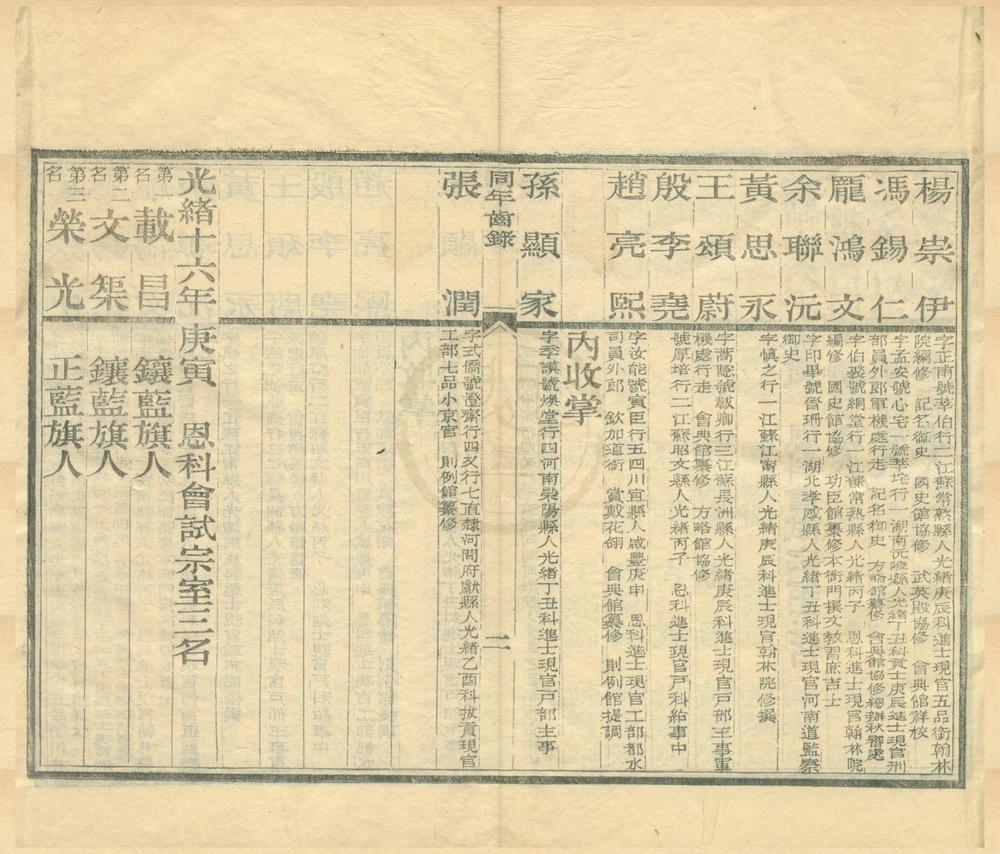 楊崇伊
字正甫號莘伯行二江蘇常熟縣人光緒庚辰科進士現官五品銜翰林
院編修 記名御史 國史館協修 武英殿協修 會典館詳校
馮錫仁
字孟安號心宅一號莘垞行一湖南沅陵縣人光緒丁丑科貢士庚辰進士現官刑
部員外郎軍機處行走 記名御史 方略館纂修 會典館協修總辦秋審處
龎鴻文
字伯裘號絅堂行一江蘇常熟縣人光緒丙子 恩科進士現官翰林院
編修 國史館協修 功臣館纂修本衙門撰文教習庶吉士
余聯沅
字印畢號晉珊行一湖北孝感縣人光緒丁丑科進士現官河南道監察
御史
黃思永
字慎之行一江蘇江甯縣人光緒庚辰科進士現官翰林院修撰
王頌蔚
字蒿隱號紱卿行三江蘇長洲縣人光緒庚辰科進士現官戶部主事軍
機處行走 會典館纂修 方略館協修
殷李堯
號厚培行二江蘇昭文縣人光緒丙子 恩科進士現官戶科給事中
趙亮熙
字汝能號寅臣行五四川宜賓縣人咸豐庚申 恩科進士現官工部都水
司員外郎 欽加道銜 賞戴花翎 會典館纂修 則例館提調
內收掌
孫顯家
字季謨號煥堂行四河南滎陽縣人光緒丁丑科進士現官戶部主事
同年齒錄 二
張潤
字式僑號澄齋行四又行七直隸河間府獻縣人光緒乙酉科拔貢現官
工部七品小京官 則例館纂修
光緒十六年庚寅 恩科會試宗室三名
第一名 載昌 鑲藍旗人
第二名 文榘 鑲藍旗人
第三名 榮光 正藍旗人